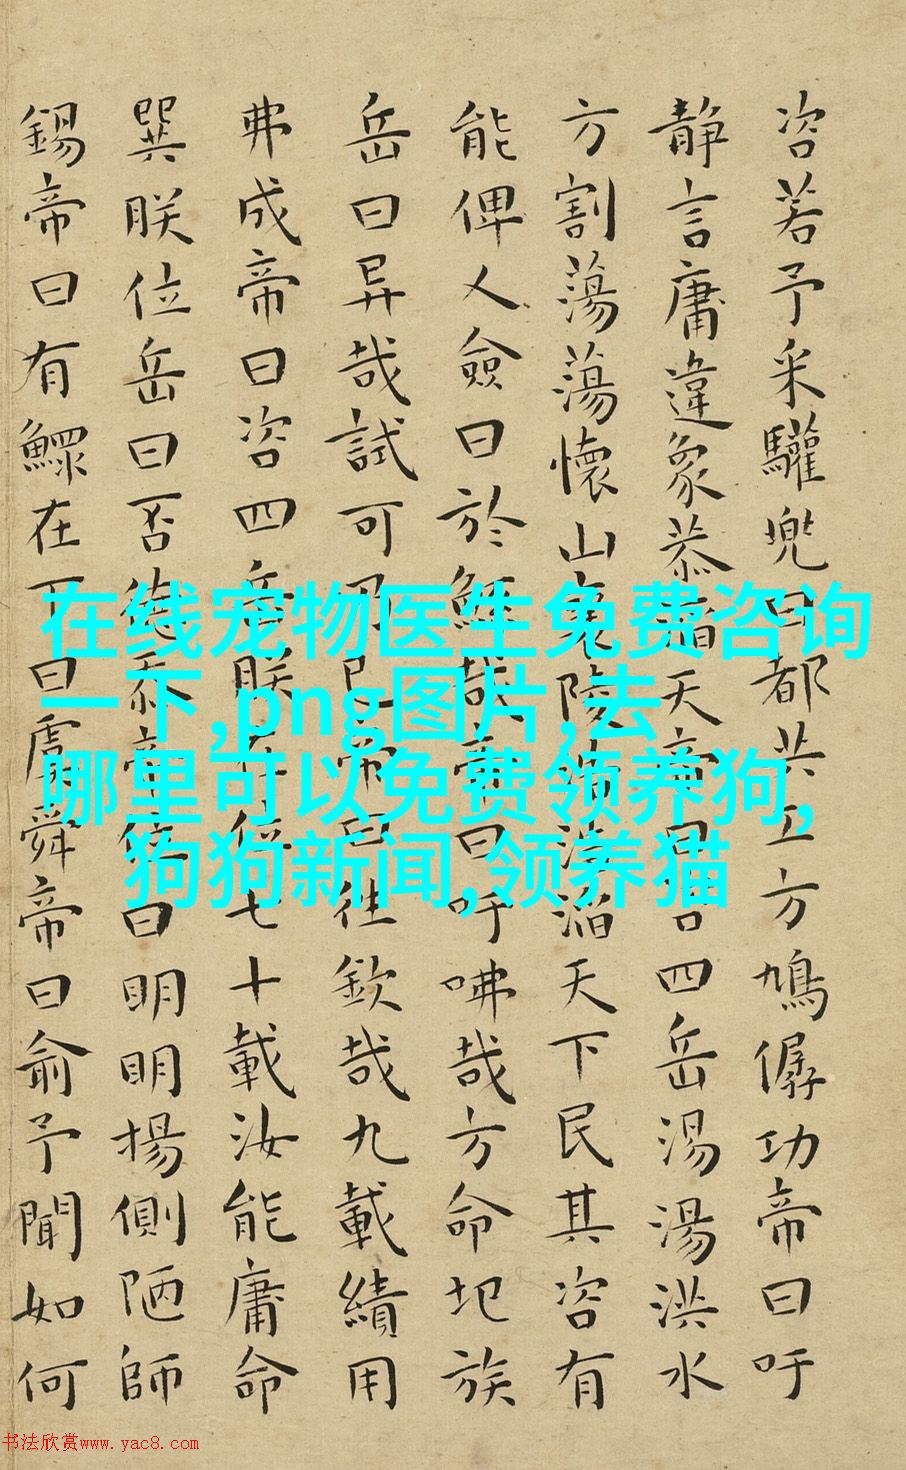 咨若予采驩兜曰都共工方鳩僝功帝曰吁
静言庸違象恭滔天帝曰咨四岳湯湯洪水
方割蕩蕩懷山襄陵浩浩滔天下民其咨有
能俾乂僉曰於鯀哉帝曰吁咈哉方命圮族
岳曰异哉試可乃已帝曰往欽哉九載績用
弗成帝曰咨四岳朕在位七十載汝能庸命
巽朕位岳曰否德忝帝位曰明明揚側陋師
錫帝曰有鰥在下曰虞舜帝曰俞予聞如何
在线宠物医生免费咨询
一下,png图片,去
哪里可以免费领养狗,
狗狗新闻,领养猫
书法欣赏www.yac8.com